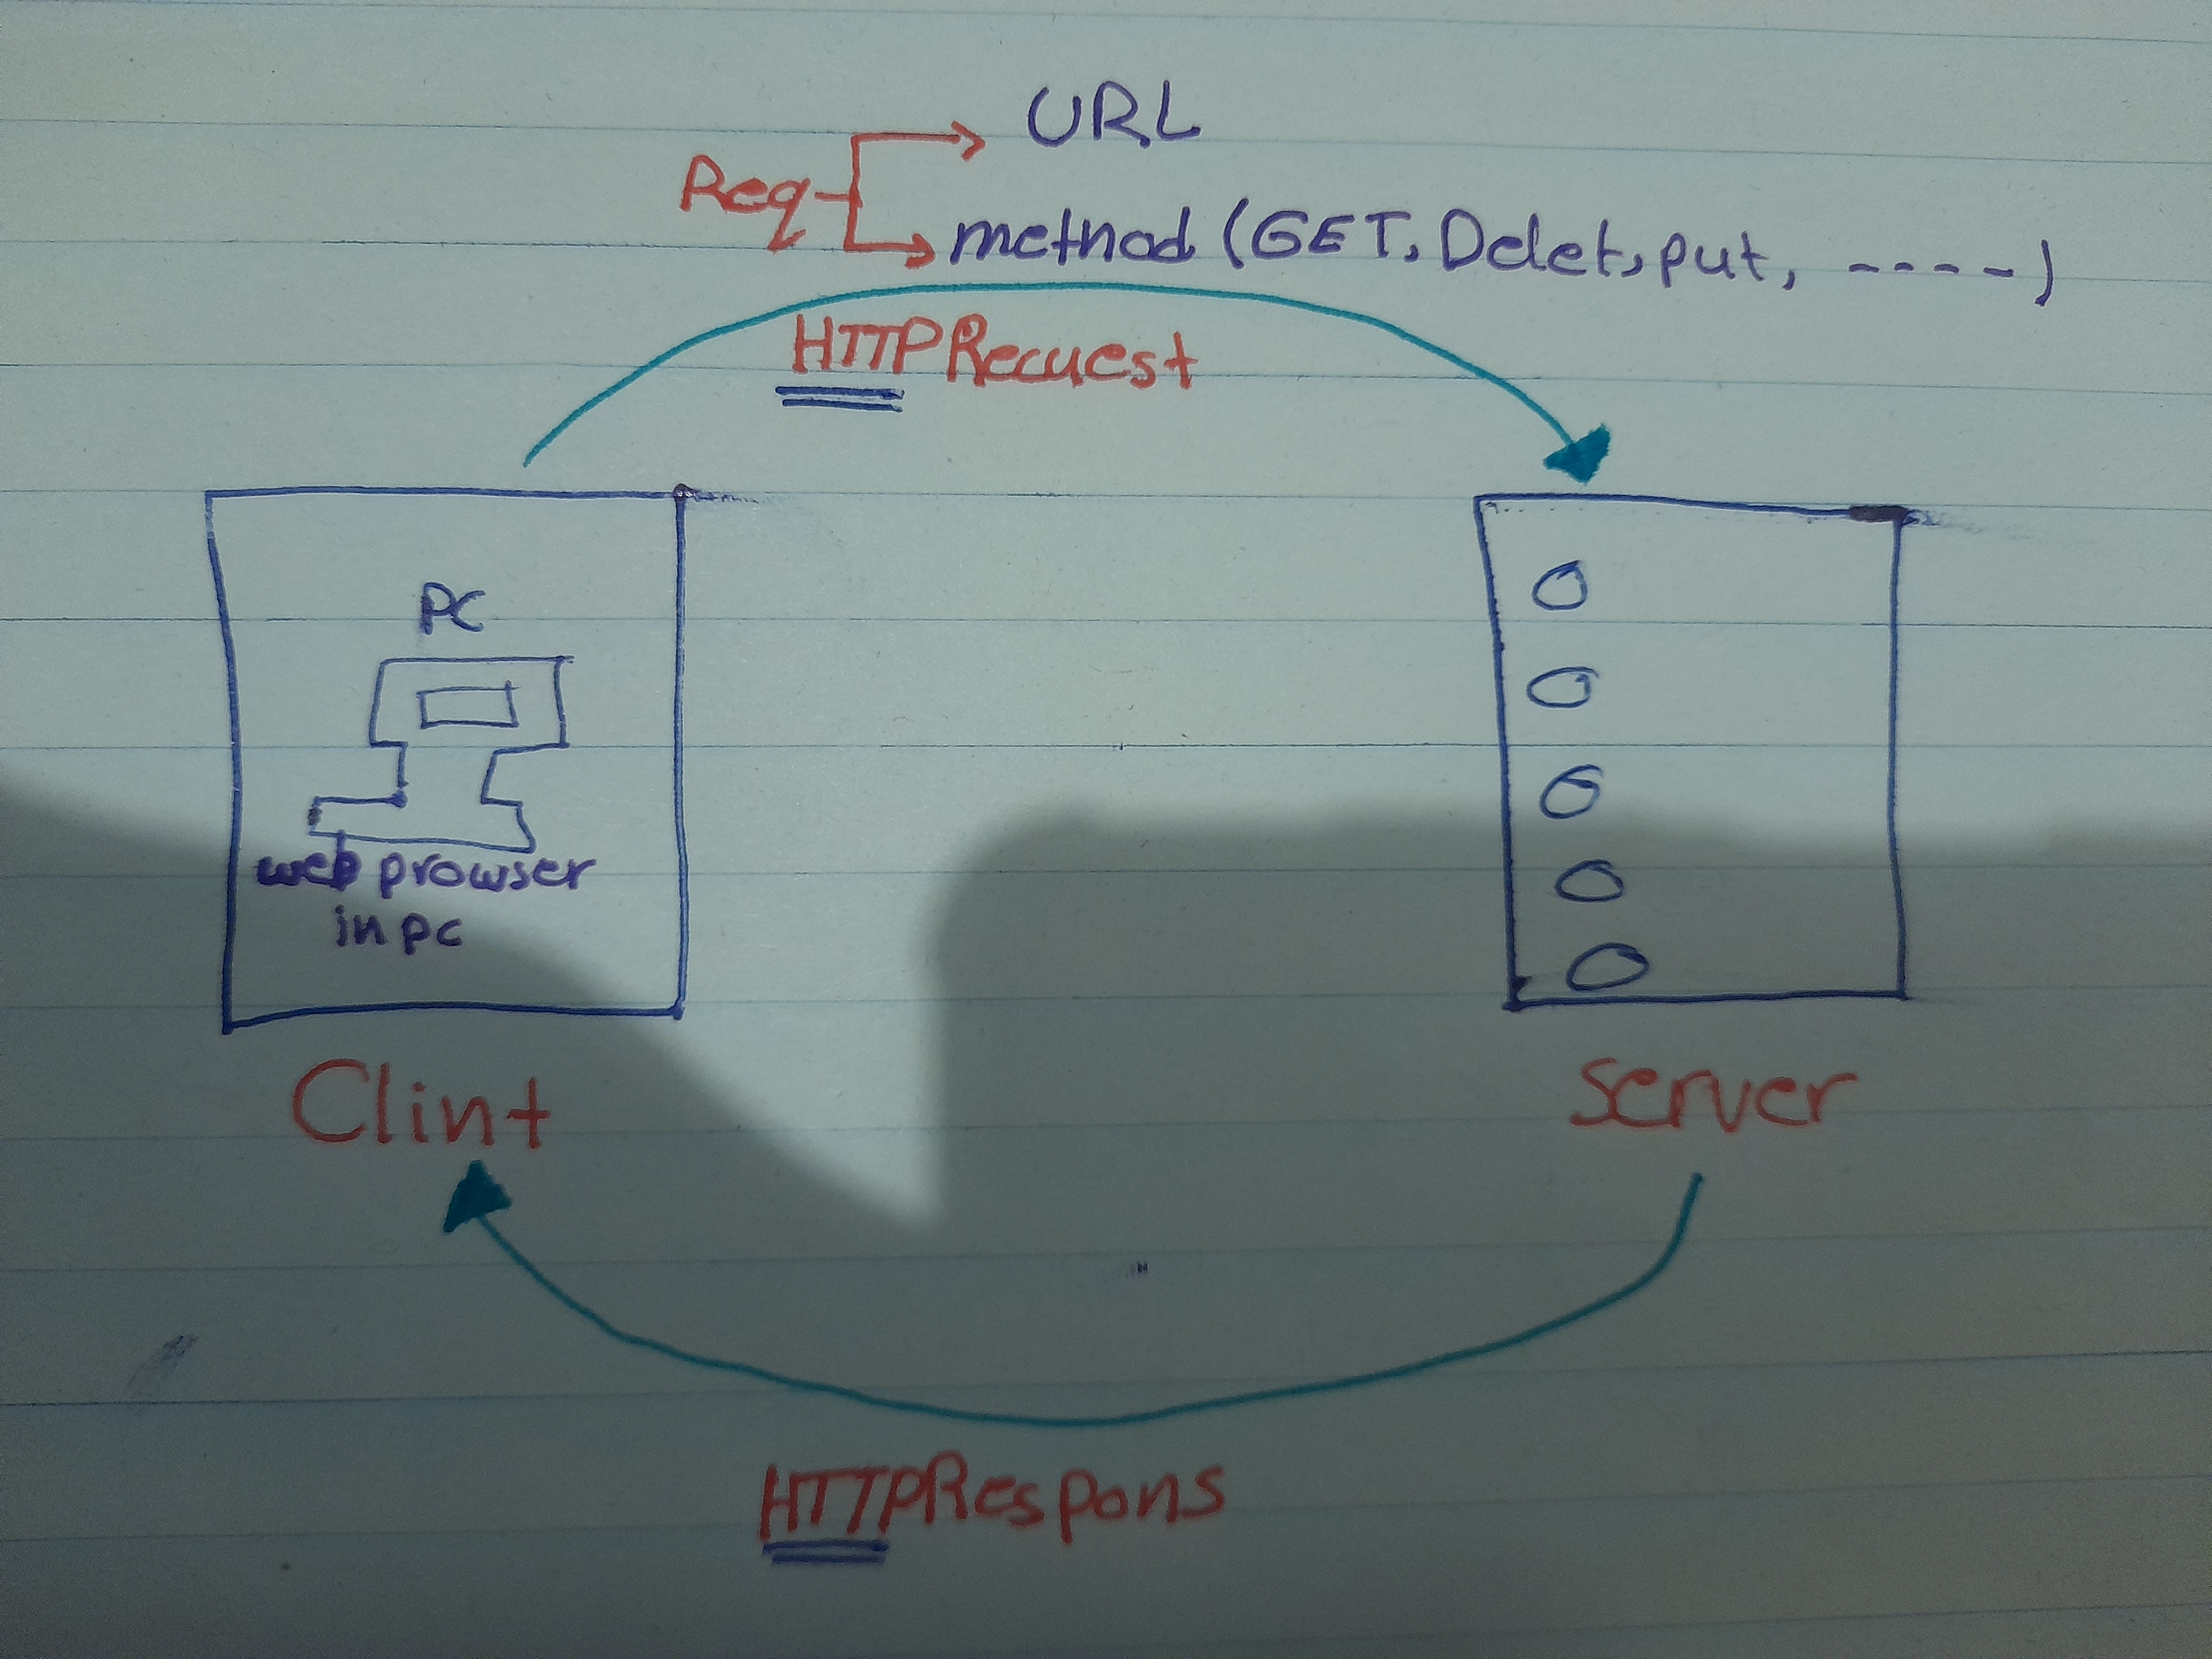 URL
Req
method (GET, Delet, put, ----)
HTTP Recuest
PC
web prowser
in pc
Clint
server
HTTP Respons